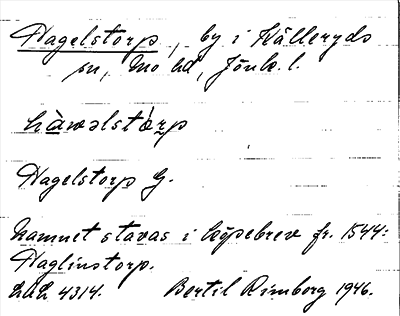 Hagelstorp, by i Källeryds
sn, Mo hd, Jönk. l.
hàwəlstórp
Hagelstorp G.
Namnet stavas i köpebrev fr. 1544:
Haglinstorp.
LAL 4314. Bertil Rimborg 1946.